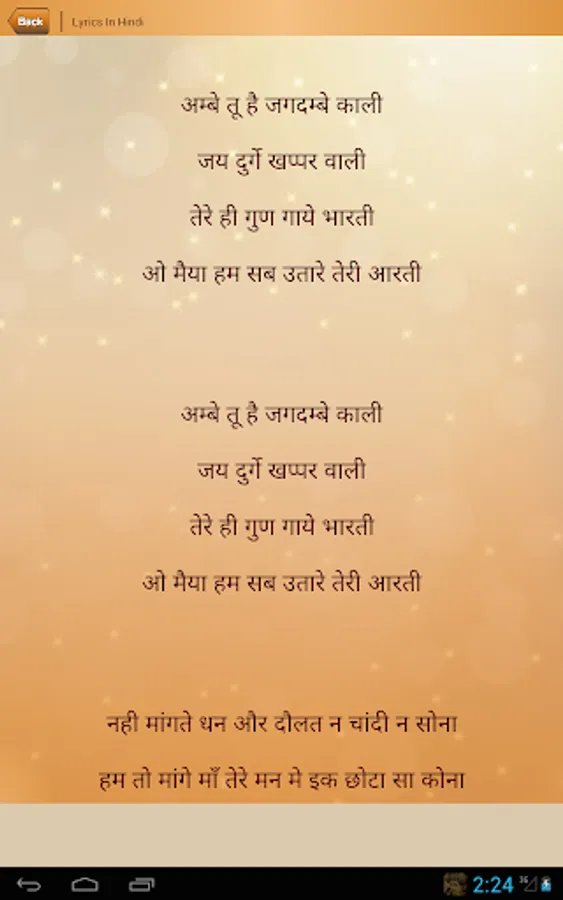 Back
Lyrics In Hindi
अम्बे तू है जगदम्बे काली
जय दुर्गे खप्पर वाली
तेरे ही गुण गाये भारती
ओ मैया हम सब उतारे तेरी आरती
अम्बे तू है जगदम्बे काली
जय दुर्गे खप्पर वाली
तेरे ही गुण गाये भारती
ओ मैया हम सब उतारे तेरी आरती
नही मांगते धन और दौलत न चांदी न सोना
हम तो मांगे माँ तेरे मन मे इक छोटा सा कोना
2:24